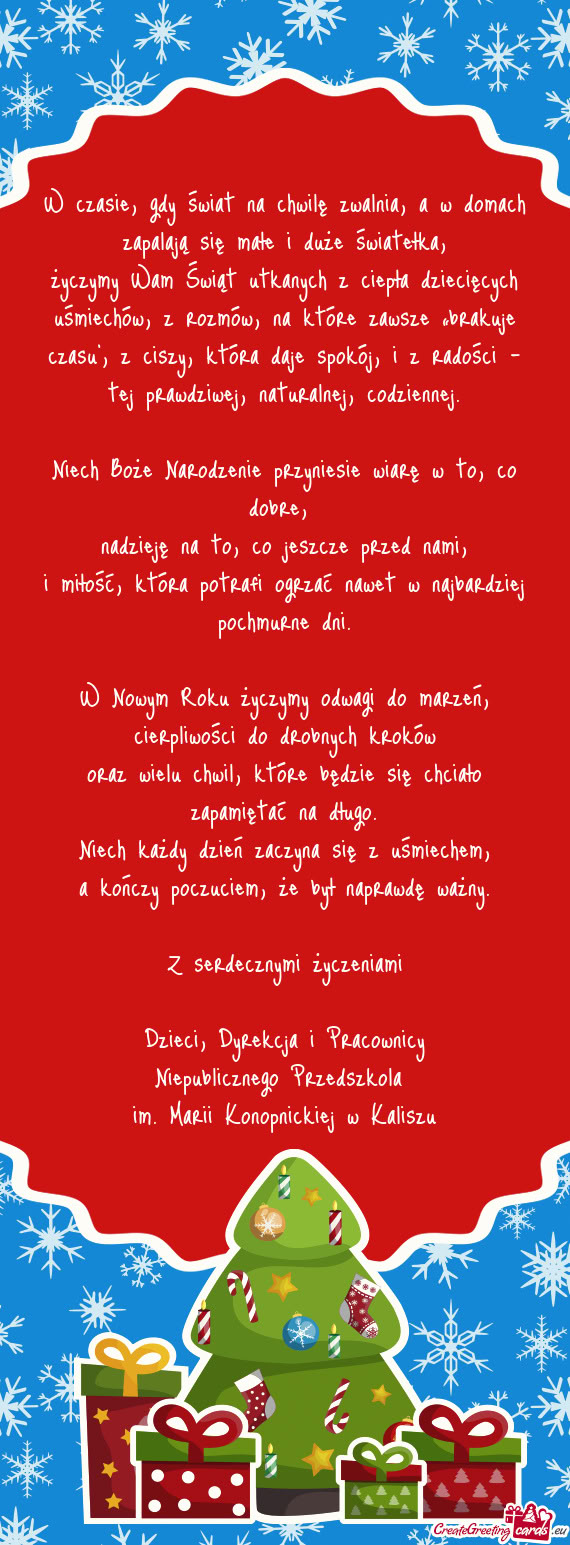 W czasie, gdy świat na chwilę zwalnia, a w domach
zapalają się małe i duże światełka,
życzymy Wam Świąt utkanych z ciepła dziecięcych
uśmiechów, z rozmów, na które zawsze „brakuje
czasu”, z ciszy, która daje spokój, i z radości -
tej prawdziwej, naturalnej, codziennej.
Niech Boże Narodzenie przyniesie wiarę w to, co
dobre,
nadzieję na to, co jeszcze przed nami,
i miłość, która potrafi ogrzać nawet w najbardziej
pochmurne dni.
W Nowym Roku życzymy odwagi do marzeń,
cierpliwości do drobnych kroków
oraz wielu chwil, które będzie się chciało
zapamiętać na długo.
Niech każdy dzień zaczyna się z uśmiechem,
a kończy poczuciem, że był naprawdę ważny.
Z serdecznymi życzeniami
Dzieci, Dyrekcja i Pracownicy
Niepublicznego Przedszkola
im. Marii Konopnickiej w Kaliszu
CreateGreetingcards.eu